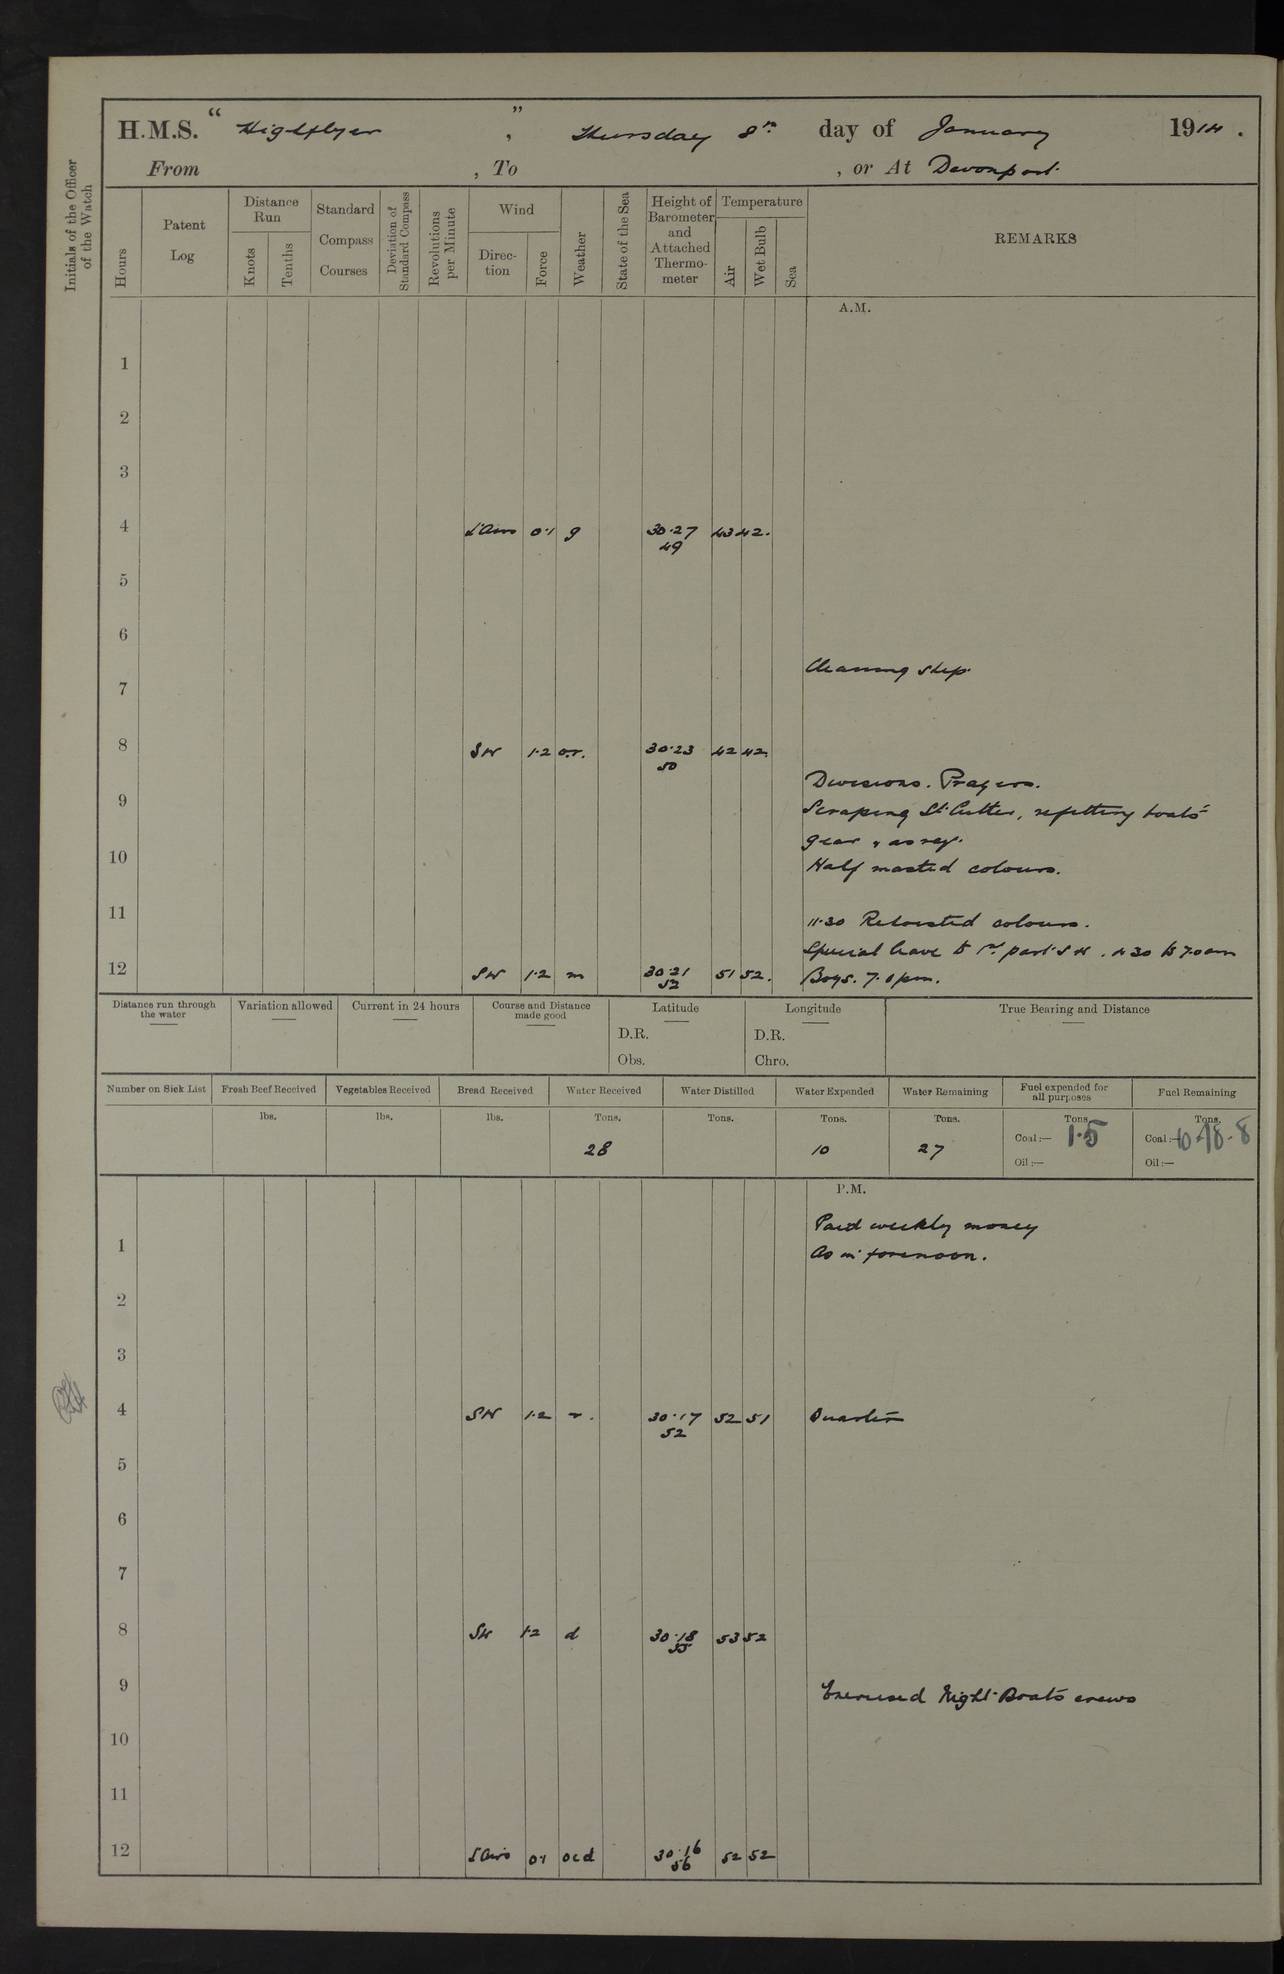 H.M.S. " Highflyer ", Thursday 8th day of January 1914.
From , To , or At Devonport.
Initials of the Officer of the Watch
Hours
Patent Log
Distance Run
Knots
Tenths
Standard Compass Courses
Deviation of Standard Compass
Revolutions per Minute
Wind
Direction
Force
Weather
State of the Sea
Height of Barometer and Attached Thermometer
Temperature
Air
Wet Bulb
Sea
REMARKS
A.M.
1
2
3
4 L. Airs 0.1 g 30.27 43 42.
49
5
6
Cleaning ship.
7
8 SW 1.2 o.r. 30.23 42 42.
50
Divisions. Prayers.
9
Scraping St. Cutter, refitting boats
gear & as req.
10
Half masted colours.
11
11.30 Rehoisted colours.
Special leave to 1st part S W. 4 30 to 7.0 am
12 SW 1.2 m 30.21 51 52. Boys. 7.0 pm.
52
Distance run through the water
Variation allowed
Current in 24 hours
Course and Distance made good
Latitude
D.R.
Obs.
Longitude
D.R.
Chro.
True Bearing and Distance
Number on Sick List
Fresh Beef Received
Vegetables Received
Bread Received
Water Received
Water Distilled
Water Expended
Water Remaining
Fuel expended for all purposes
Fuel Remaining
lbs. lbs. lbs. Tons. Tons. Tons. Tons. Tons. Tons.
28 10 27
Coal:— 1.5
Coal:—
Oil:— Oil:—
P.M.
Paid weekly money
1
As in forenoon.
2
3
4 SW 1.2 r. 30.17 52 51 Quarters
52
5
6
7
8 SW 1.2 d 30.18 53 52
55
9
Exercised Night Boats crews
10
11
12 L Airs 0.1 ocd 30.16 52 52
56